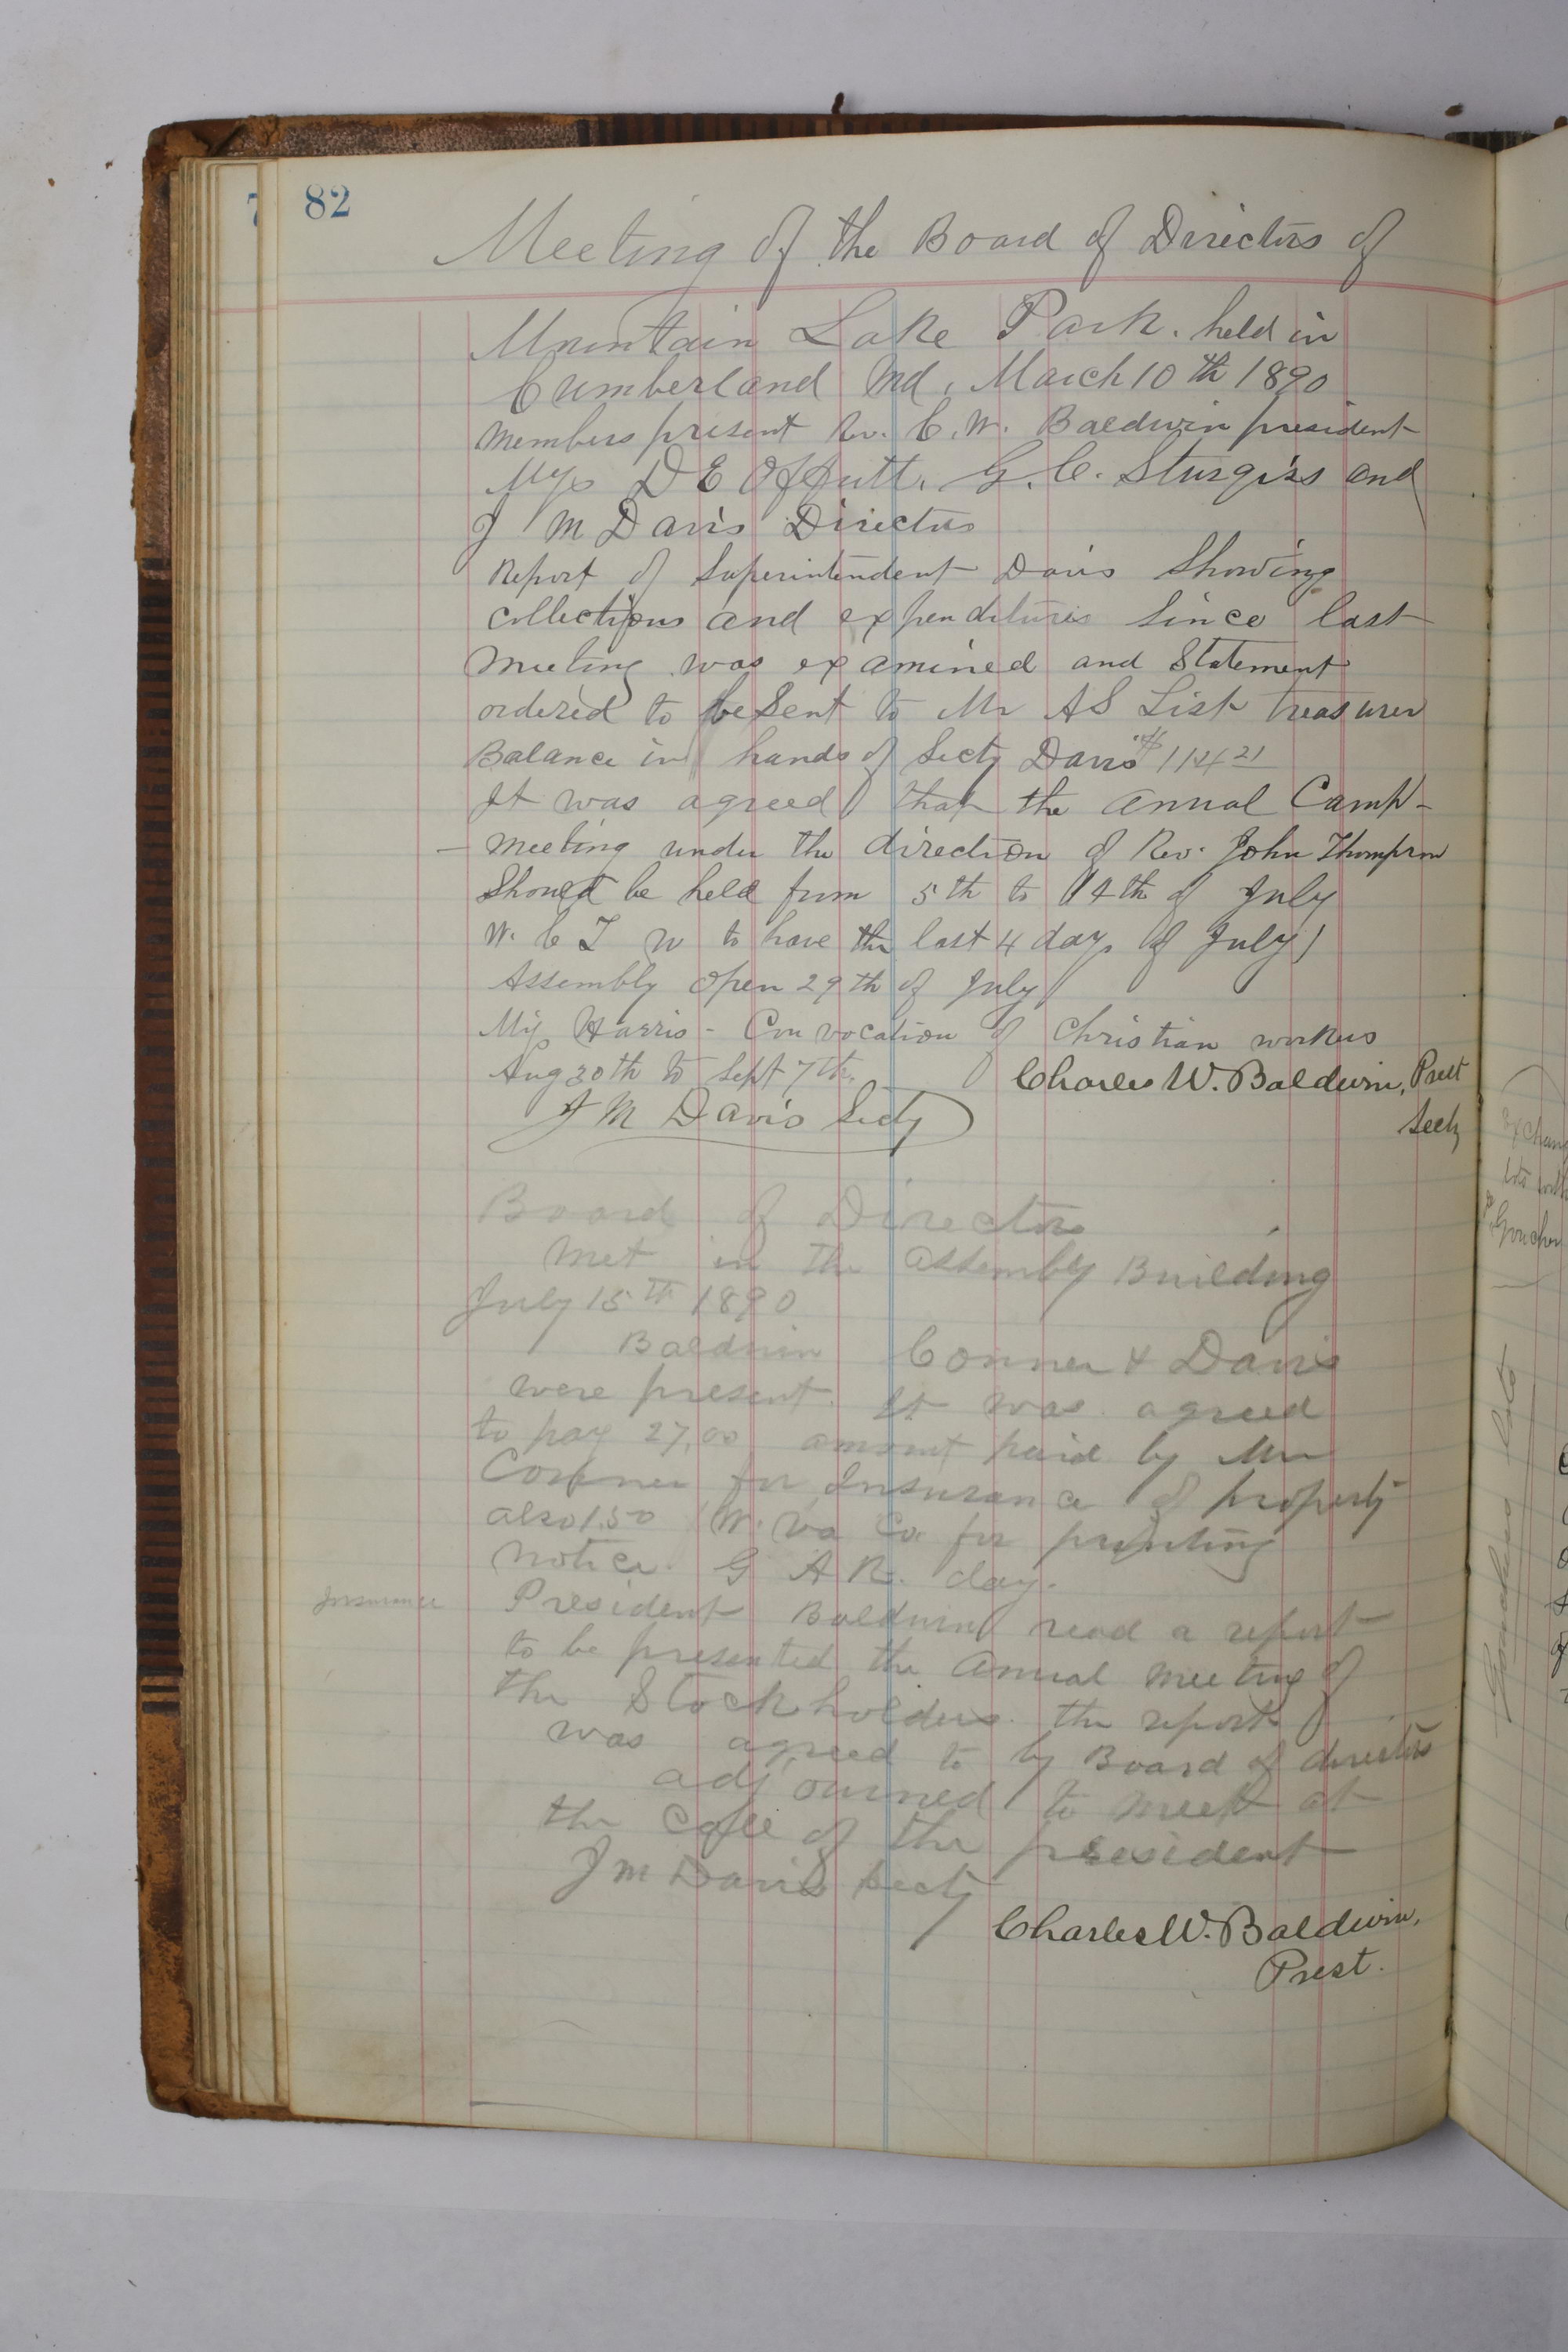 82
Meeting of the Board of Directors of
Mountain Lake Park. held in
Cumberland Md, March 10th 1890
Members present Rev. C. W. Baldwin president
D E Offutt. G. C. Sturgiss and
J M Davis Directors
Report of Superintendent Davis Showing
collections and expenditures Since last
meeting was examined and Statement
ordered to be Sent to Mr A S List treasurer
Balance in hands of Secty Davis $
It was agreed that the annual Camp-
- meeting under the direction of Rev. John Thompson
Should be held from 5th to 14th of July
W. C T U to have the last 4 days of July
Assembly open 29th of July
Harris - Convocation of Christian workers
Aug 30th to Sept 7th.
Charles W. Baldwin, Prest
J M Davis Secty
Secty
Board of Directors
Met in the assembly Building
July 15th 1890
Baldwin Conner & Davis
were present. It was agreed
to pay 27,00 amount paid by Mr
Conner for Insurance of property
also 1.50 W. Va Co. for printing
notice. G A R. day.
Insurance
President Baldwin read a report
to be presented the annual meeting of
the Stockholders. the report
was agreed to by Board of directors
adjourned to meet at
the Call of the president
J M Davis Secty
Charles W. Baldwin,
Prest.